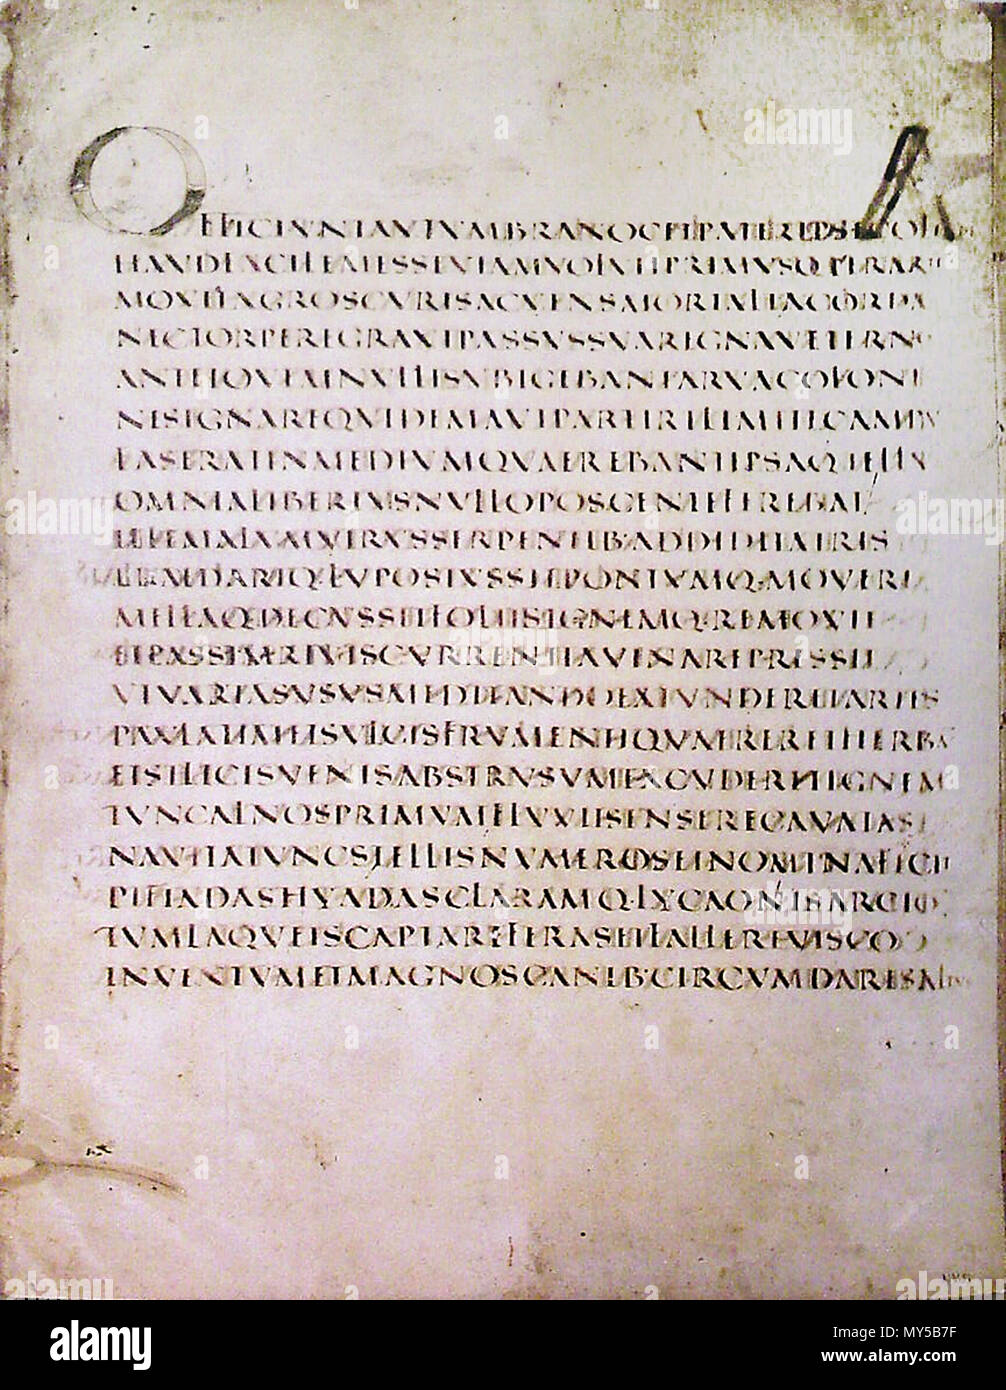 OFFICIVNTAVTVMBRANOCETPATERIPSECOLENDI
HAVDFACILEMESSEVIAMVOLVITPRIMVSQ·PERARTE
MOVITAGROSCVRISACVENSMORTALIACORDA
NECTORPEREGRAVIPASSVSSVAREGNAVETERNO
ANTEIOVEMNVLLISVBIGEBANTARVACOLONI
NESIGNAREQVIDEMAVTPARTIRILIMITECAMPV
FASERATINMEDIVMQVAEREBANTIPSAQ·TELLVS
OMNIALIBERIVSNVLLOPOSCENTEFEREBAT
ILLEMALVMVIRVSSERPENTIB·ADDIDITATRIS
PRAEDARIQ·LVPOSIVSSITPONTVMQ·MOVERI
MELLAQ·DECVSSITFOLIISIGNEMQ·REMOVIT
ETPASSIMRIVISCVRRENTIAVINAREPRESSIT
VTVARIASVSVSMEDITANDOEXTVNDERETARTIS
PAVLATIMETSVLCISFRVMENTIQVAERERETHERBA
ETSILICISVENISABSTRVSVMEXCVDERETIGNEM
TVNCALNOSPRIMVMFLVVIISENSERECAVATAS
NAVITATVNCSTELLISNVMEROSETNOMINAFECIT
PLEIADASHYADASCLARAMQ·LYCAONISARCTO
TVMLAQVEISCAPTAREFERASETFALLEREVISCO
INVENTVMETMAGNOSCANIB·CIRCVMDARESALTVS
alamy
a
Image ID: MY5B7F
www.alamy.com